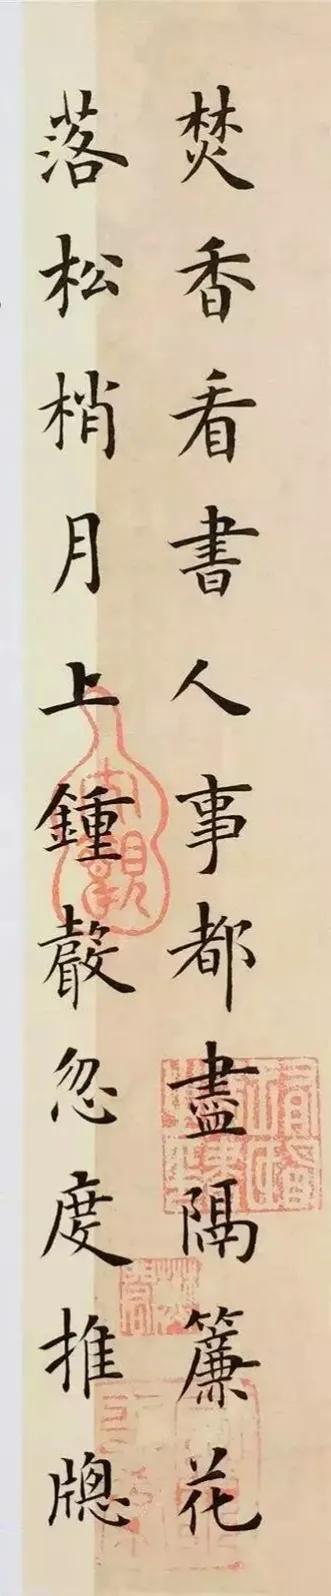 焚香看書人事都盡隔簾花
落松梢月上鍾聲忽度推牕